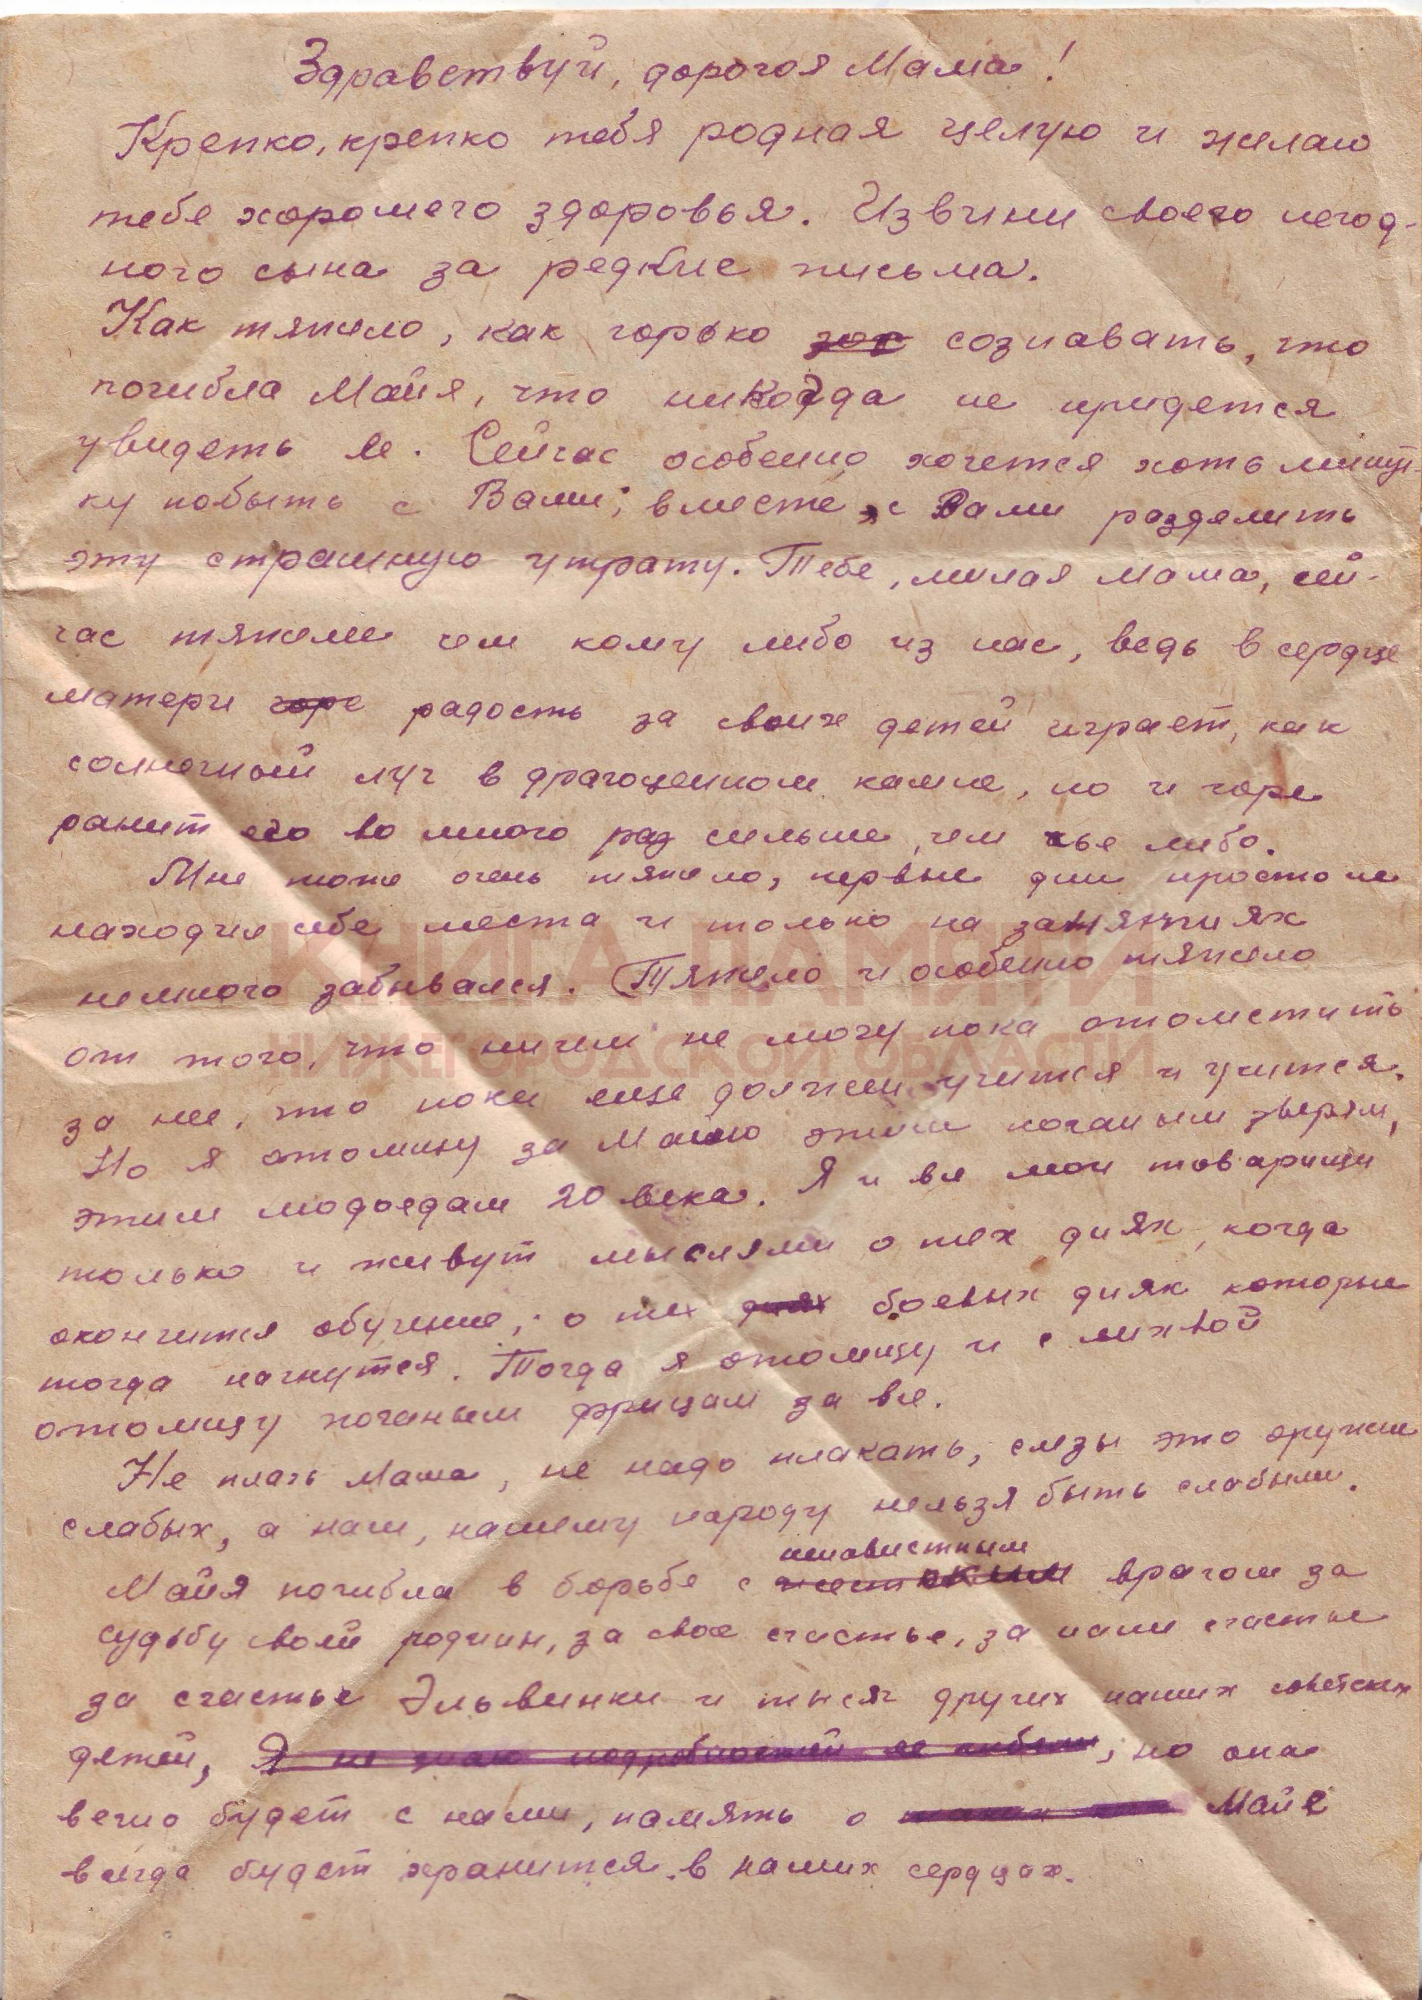 Здравствуй, дорогая Мама!
Крепко, крепко тебя родная целую и желаю
тебе хорошего здоровья. Извини своего негод-
ного сына за редкие письма.
Как тяжело, как горько сознавать, что
погибла Майя, что никогда не придется
увидеть ее. Сейчас особенно хочется хоть минут-
ку побыть с Вами, вместе с Вами разделить
эту страшную утрату. Тебе, милая мама, сей-
час тяжелее чем кому либо из нас, ведь в сердце
матери горе радость за своих детей играет, как
солнечный луч в драгоценном камне, но и горе
ранит его во много раз сильнее, чем чье либо.
Мне тоже очень тяжело, первые дни просто не
находил себе места и только на занятиях
немного забывался. Тяжело и особенно тяжело
от того, что ничем не могу пока отомстить
за нее, что пока еще должен учится и учится.
Но я отомщу за Майю этим поганым зверям,
этим людоедам 20 века. Я и все мои товарищи
только и живут мыслями о тех днях, когда
окончится обучение, о тех днях боевых днях которые
тогда начнутся. Тогда я отомщу и с лихвой
отомщу поганым фрицам за все.
Не плачь Мама, не надо плакать, слезы это оружие
слабых, а нам, нашему народу нельзя быть слабыми.
ненавистным
Майя погибла в борьбе с жестоким врагом за
судьбу своей родины, за свое счастье, за наше счастье
за счастье Эльвинки и тысяч других наших советских
детей, Я не знаю подробностей ее гибели, но она
вечно будет с нами, память о Майе
всегда будет хранится в наших сердцах.
КНИГА ПАМЯТИ
НИЖЕГОРОДСКОЙ ОБЛАСТИ